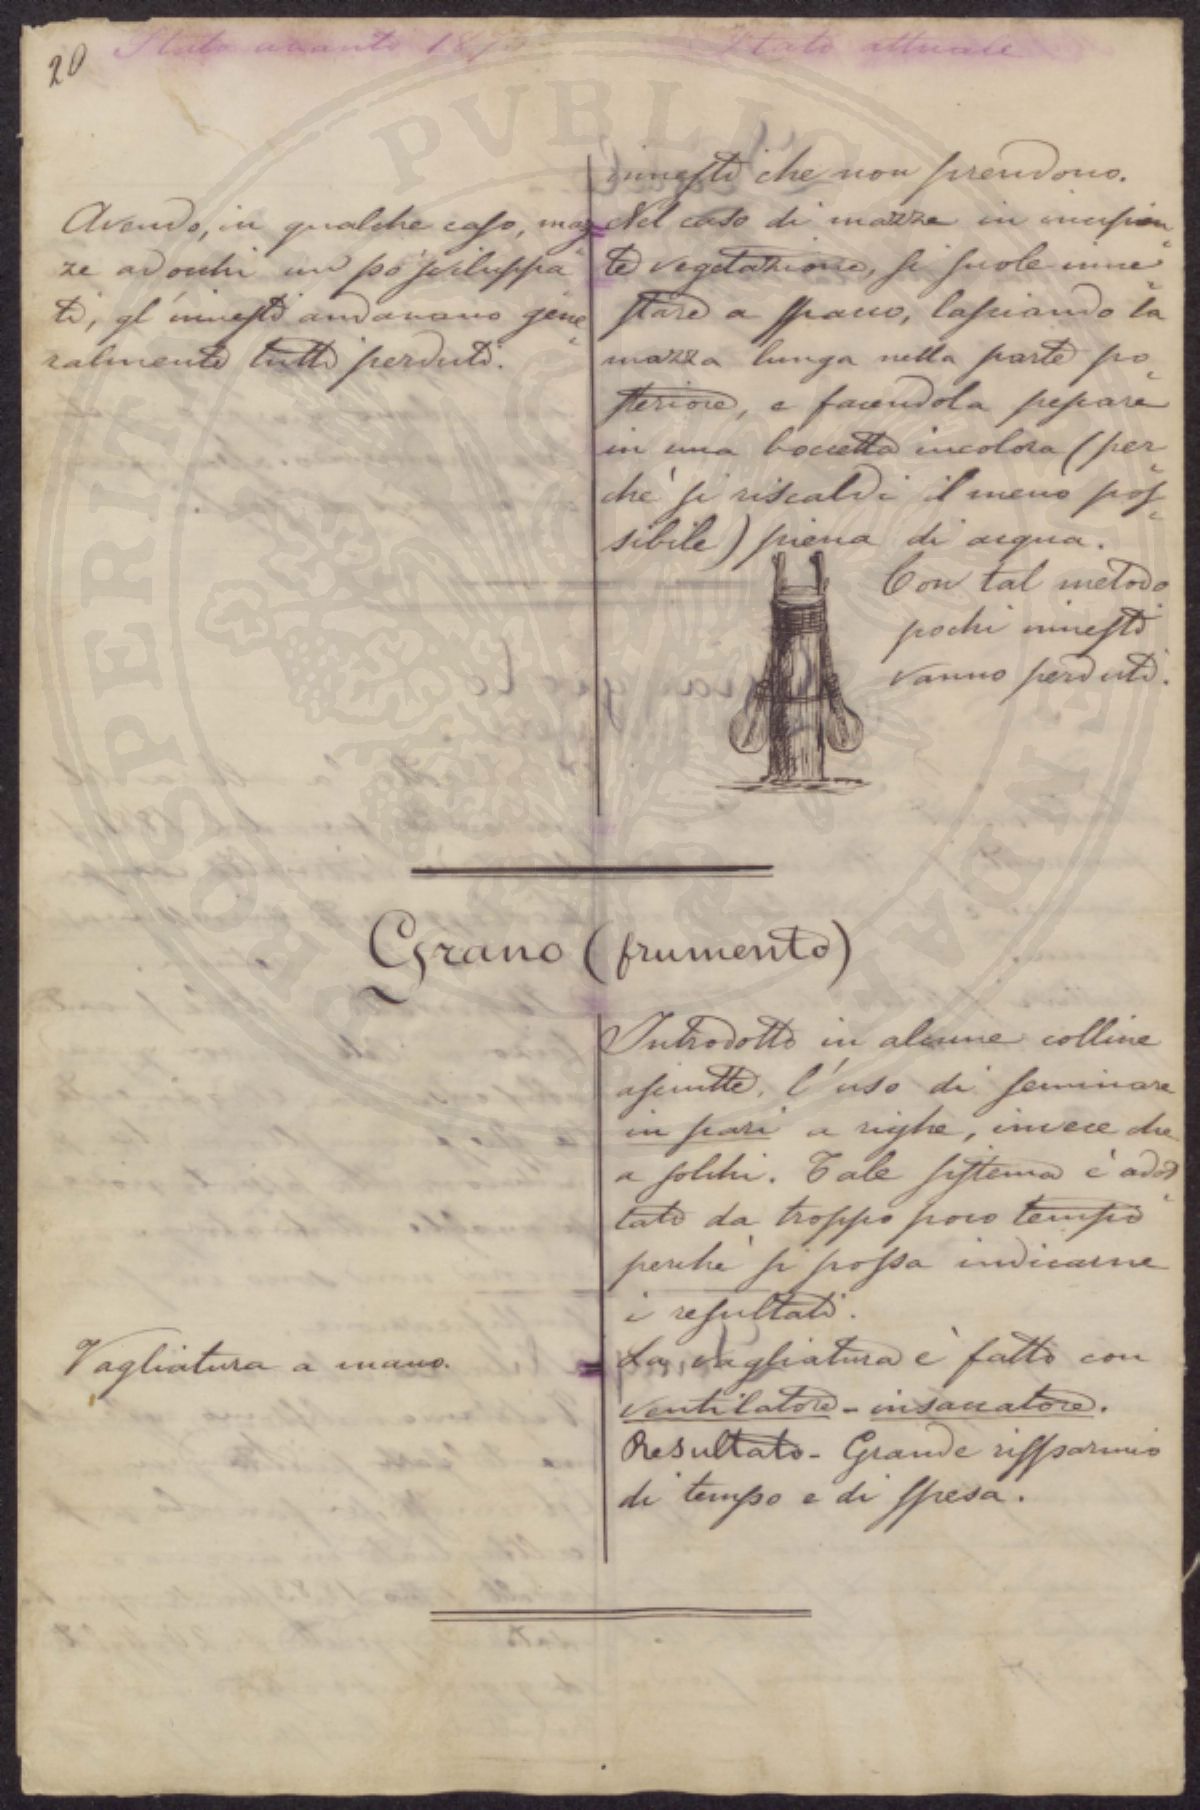 20
Stato avanti 18
Stato attuale
Avendo, in qualche caso, maz
ze ad occhi un po' sviluppa
ti, gl'innesti andavano gene
ralmente tutti perduti.
innesti che non prendono.
Nel caso di mazze in incipien
te vegetazione, si suole inne
stare a spacco, lasciando la
mazza lunga nella parte po
steriore, e facendola pescare
in una boccetta incolora (per
chè si riscaldi il meno pos
sibile) piena di acqua.
Con tal metodo
pochi innesti
vanno perduti.
Grano (frumento)
Introdotto in alcune colline
asciutte, l'uso di seminare
in pari a righe, invece che
a solchi. Tale sistema è adot
tato da troppo poco tempo
perchè si possa indicarne
i resultati.
Vagliatura a mano.
La vagliatura è fatta con
ventilatore - insaccatore.
Resultato - Grande risparmio
di tempo e di spesa.